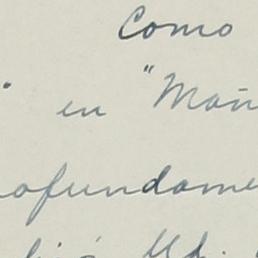 Como
" en "Mañ
rofundame
Ud.